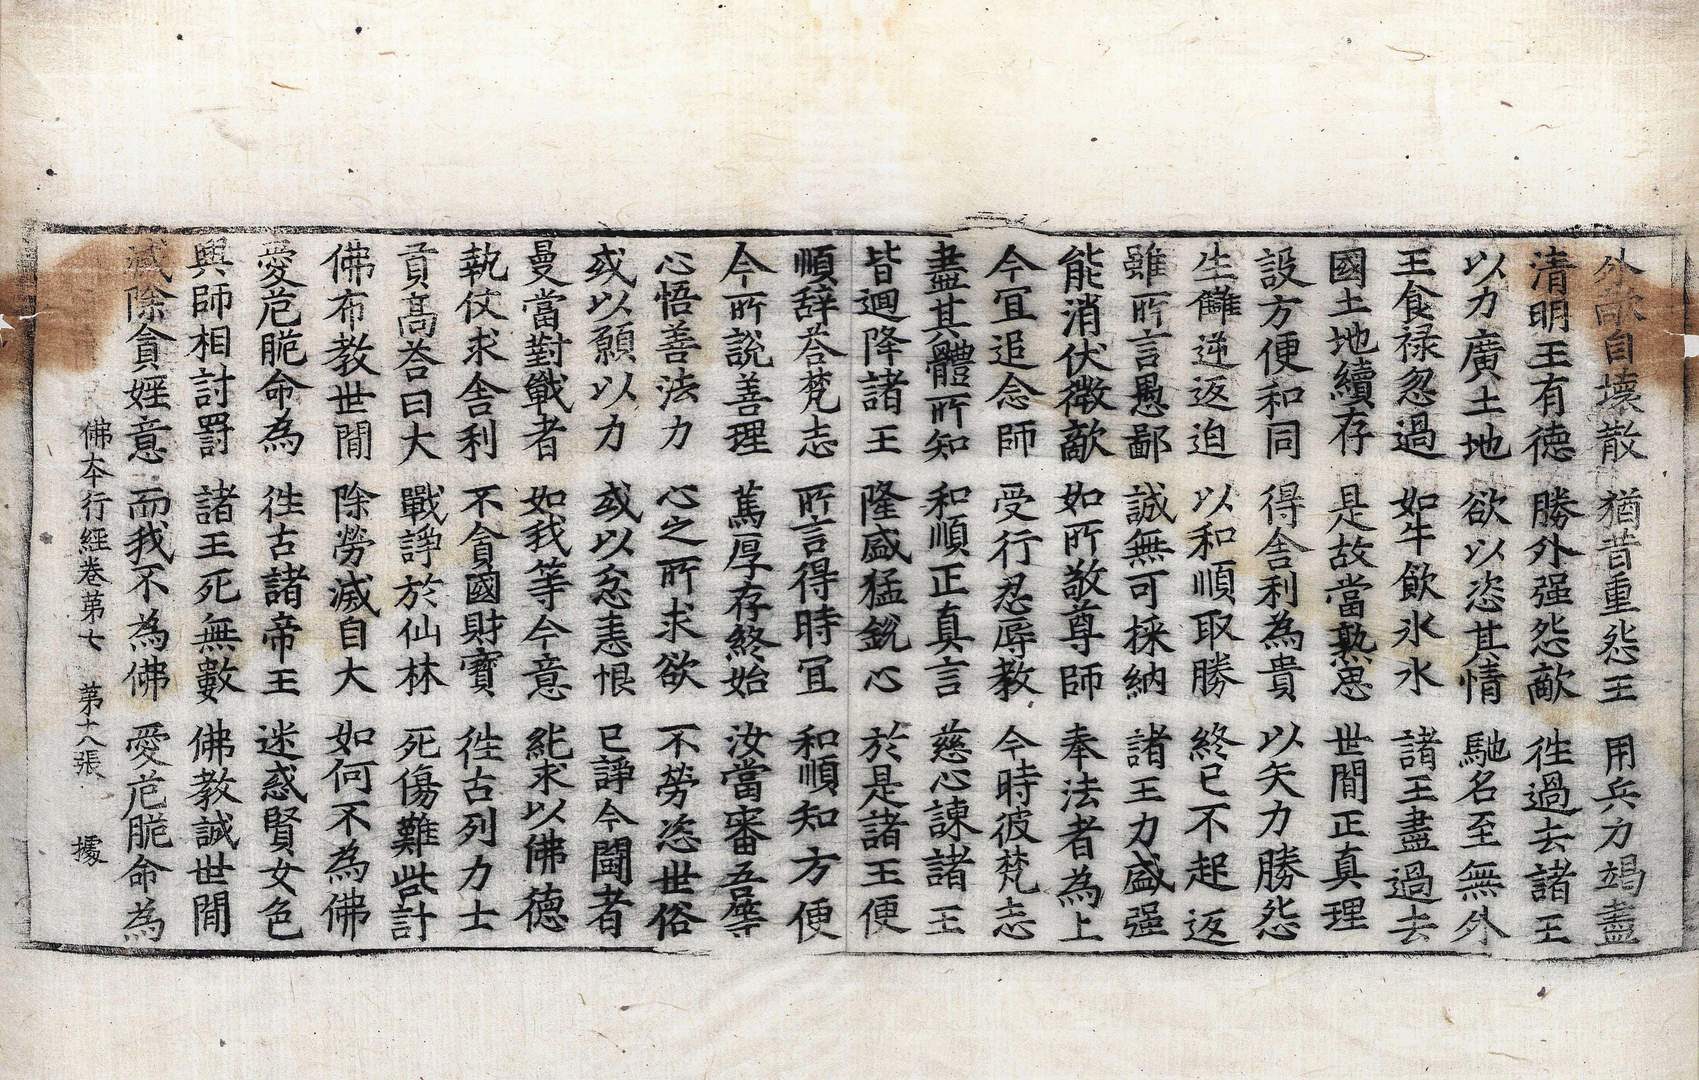 外敵自壞散 猶昔重怨王 用兵力竭盡
清明王有德 勝外强怨敵 徃過去諸王
以力廣土地 欲以恣其情 馳名至無外
王食禄忽過 如牛飲氷水 諸王盡過去
國土地續存 是故當熟思 世間正真理
設方便和同 得舍利為貴 以矢力勝怨
生讎逆返迫 以和順取勝 終已不起返
雖所言愚鄙 誠無可採納 諸王力盛强
能消伏徵敵 如所敬尊師 奉法者為上
今宜追念師 受行忍辱教 今時彼梵志
盡其體所知 和順正真言 慈心諫諸王
皆迴降諸王 隆盛猛銳心 於是諸王便
順辭荅梵志 所言得時宜 和順知方便
今所說善理 篤厚存終始 汝當審吾等
心悟善法力 心之所求欲 不勞恣世俗
或以願以力 或以忿恚恨 已諍今鬪者
曼當對戰者 如我等今意 純求以佛德
執仗求舍利 不貪國財寶 徃古列力士
貢高荅曰大 戰諍於仙林 死傷難呰計
佛布教世間 除勞滅自大 如何不為佛
愛危脆命為 徃古諸帝王 迷惑賢女色
興師相討罸 諸王死無數 佛教誡世間
滅除貪婬意 而我不為佛 愛危脆命為
佛夲行經卷第七 第十八張 據